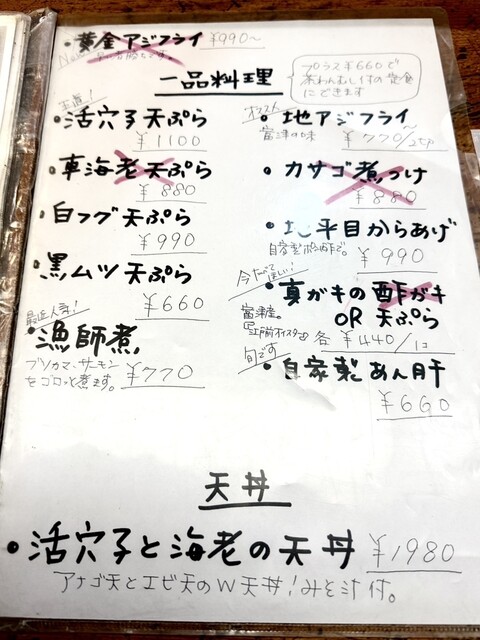 ・黄金アジフライ ¥990〜
New 早い者勝ちです。
一品料理
プラス¥660で
茶わんむし付の定食
にできます
王道!
・活穴子天ぷら
¥1100
・車海老天ぷら
¥880
・白フグ天ぷら
¥990
・黒ムツ天ぷら
¥660
最近人気!
・漁師煮
ブリカマ、サーモン
をゴロッと煮ます。
¥770
オススメ
・地アジフライ
富津の味 ¥770/2コ
・カサゴ煮つけ
¥880
・地平目からあげ
自家製ポン酢で。 ¥990
今たべてほしい!
・真ガキの酢ガキ
OR 天ぷら
富津産。
「江戸前オイスター」 各 ¥440/1コ
旬です
・自家製あん肝
¥660
天丼
・活穴子と海老の天丼 ¥1980
アナゴ天とエビ天のW天丼!みそ汁付。